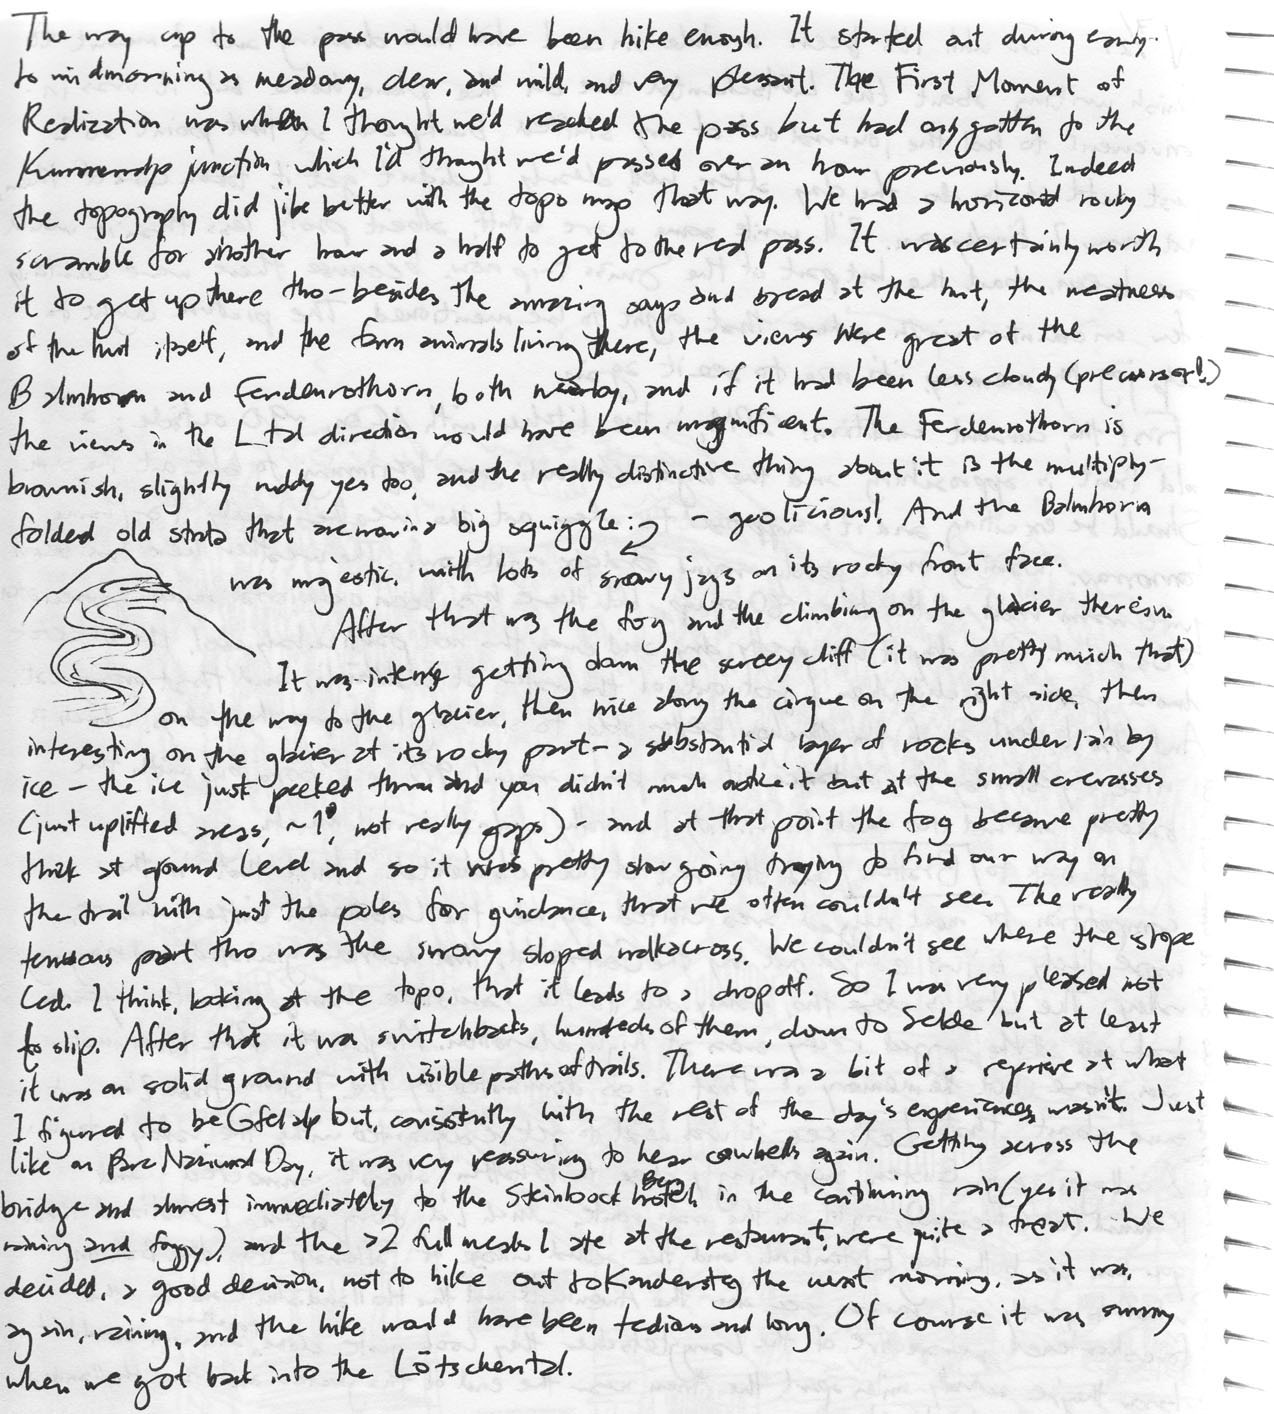 The way up to the pass would have been hike enough. It started out during early-
to midmorning as meadowy, clear, and mild, and very pleasant. The First Moment of
Realization was when I thought we'd reached the pass but had only gotten to the
Kummenalp junction which I'd thought we'd passed over an hour previously. Indeed
the topography did jibe better with the topo map that way. We had a horizontal rocky
scramble for another hour and a half to get to the real pass. It was certainly worth
it to get up there tho - besides the amazing and bread at the hut, the neatness
of the hut itself, and the farm animals living there, the views were great of the
Balmhorn and Ferdenrothorn, both nearby, and if it had been less cloudy (precursor!)
the views in the Ltal direction would have been magnificent. The Ferdenrothorn is
brownish, slightly ruddy yes too, and the really distinctive thing about it is the multiply-
folded old strata that are now in a big squiggle: - geolicious! And the Balmhorn
was majestic, with lots of snowy jags on its rocky front face.
After that was the fog and the climbing on the glacier therein.
It was intense getting down the screey cliff (it was pretty much that)
on the way to the glacier, then nice along the cirque on the right side, then
interesting on the glacier at its rocky part - a substantial layer of rocks underlain by
ice - the ice just peeked thru and you didn't much notice it but at the small crevasses
(just uplifted areas, ~1', not really gaps) - and at that point the fog became pretty
thick at ground level and so it was pretty slow going trying to find our way on
the trail with just the poles for guidance, that we often couldn't see. The really
tenuous part tho was the snowy sloped walk across. We couldn't see where the slope
led. I think, looking at the topo, that it leads to a dropoff. So I was very pleased not
to slip. After that it was switchbacks, hundreds of them, down to Selde but at least
it was on solid ground with visible paths of trails. There was a bit of a reprieve at what
I figured to be Gfelalp but, consistently with the rest of the day's experiences, wasn't. Just
like on Parc National Day, it was very reassuring to hear cowbells again. Getting across the
bridge and almost immediately to the Steinbock hotel in the continuing rain (yes it was
raining and foggy), and the >2 full meals I ate at the restaurant, were quite a treat. We
decided, a good decision, not to hike out to Kandersteg the next morning, as it was,
again, raining, and the hike would have been tedious and long. Of course it was sunny
when we got back into the Lötschental.